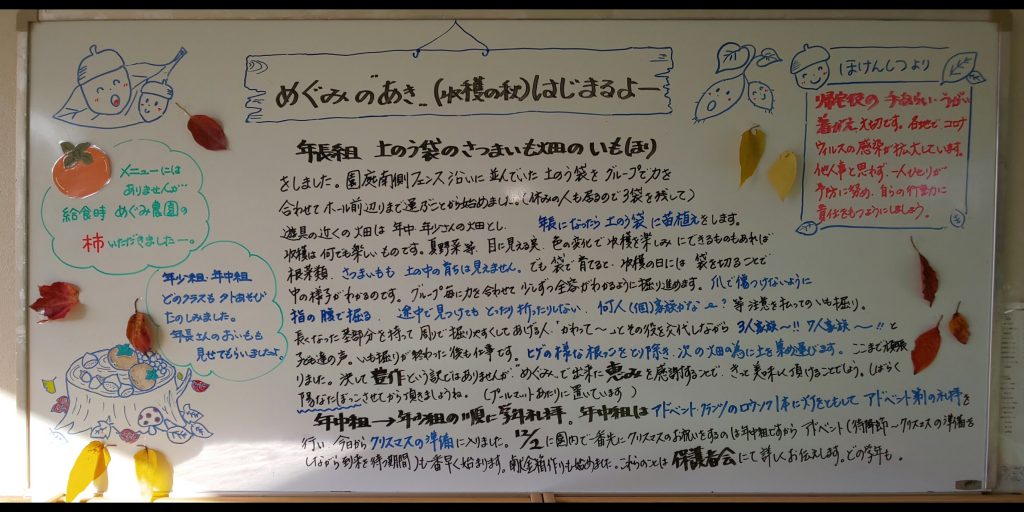 めぐみのあき_(収穫の秋)はじまるよー
ほけんしつより
帰宅後の手洗い・うがい
着がえ大切です。各地でコロナ
ウィルスの感染が拡大しています。
他人事と思わず、一人ひとりが
予防に努め、自らの行動に
責任をもつようにしましょう。
メニューには
ありませんが…
給食時 めぐみ農園の
柿いただきましたー。
年少組・年中組
どのクラスも外あそび
たのしみました。
年長さんのおいもも
見せてもらいましたよ。
年長組 土のう袋のさつまいも畑のいも(ほり)
をしました。園庭南側フェンス沿いに並んでいた土のう袋をグループで力を
合わせてホール前辺りまで運ぶことから始めました。(休みの人も居るので3袋を残して)
遊具の近くの畑は年中・年少さんの畑とし、 年長になったら土のう袋に苗植えをします。
収穫は何でも楽しいものです。夏野菜等、目に見える実、色の変化で収穫を楽しみにできるものもあれば
根菜類、さつまいもも土の中の育ちは見えません。でも袋で育てると、収穫の日には袋を切ることで
中の様子がわかるのです。グループ毎に力を合わせて少しずつ全容がわかるように掘り進めます。爪で傷つけないように
指の腹で掘る、途中で見つけてもとったり折ったりしない、何人(個)家族かな~? 等注意を払ってのいも掘り。
長くなった茎部分を持って周りで掘りやすくしてあげる人、"かわって~"とその役を交代しながら 3人家族~!! 7人家族~!! と
子ども達の声。いも掘りが終わった後も仕事です。ヒゲの様な根っこをとり除き、次の畑の為に土を集め運びます。ここまで頑張
りました。決して豊作という訳ではありませんが、"めぐみ"で出来た恵みを感謝することで、きっと美味しく頂けることでしょう。しばらく
陽なたぼっこさせてから頂きましょうね。(プールマットあたりに置いています)
年中組→年少組の順に学年礼拝。年中組はアドベントクランツのロウソク1本に灯をともして アドベント第1の礼拝を
行い、今日からクリスマスの準備に入りました。12/2に園内で一番先にクリスマスのお祝いをするのは年中組ですから アドベント(待降節~クリスマスの準備を
しながら到来を待つ期間)も一番早く始まります。献金箱作りも始めました。これらのことは保護者会にて詳しくお伝えします。どの学年も。